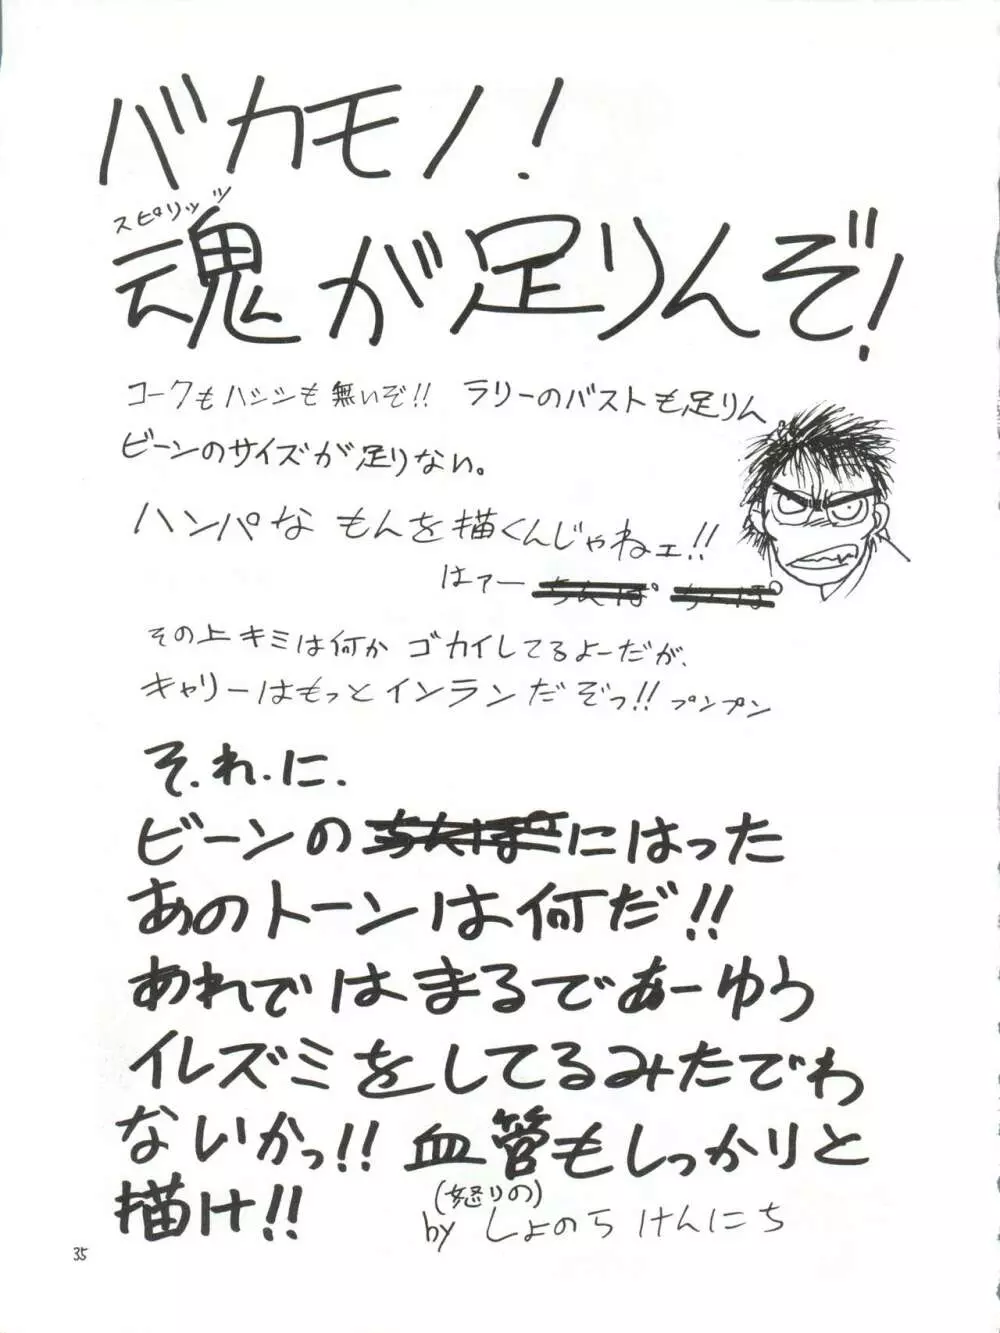 バカモノ!
スピリッツ
魂が足りんぞ!
コークもハシシも無いぞ!! ラリーのバストも足りん
ビーンのサイズが足りない。
ハンパな もんを描くんじゃねェ!!
はァー ちんぽ ちんぽ
その上キミは何か ゴカイしてるよーだが、
キャリーはもっとインランだぞっ!! プンプン
そ.れ.に.
ビーンのちんぽにはった
あのトーンは何だ!!
あれではまるであーゆう
イレズミをしてるみたでわ
ないかっ!! 血管もしっかりと
描け!!
(怒りの)
by しょのら けんにち
35